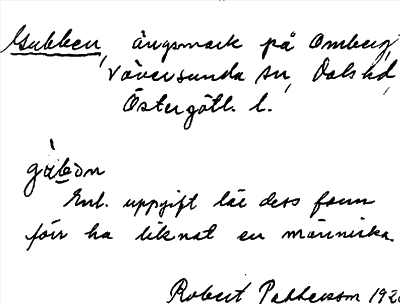 Gubben, ängsmark på Omberg,
Väversunda sn, Dals hd,
Östergötl. l.
gùbən
Enl. uppgift lär dess form
förr ha liknat en människa.
Robert Pettersson 192